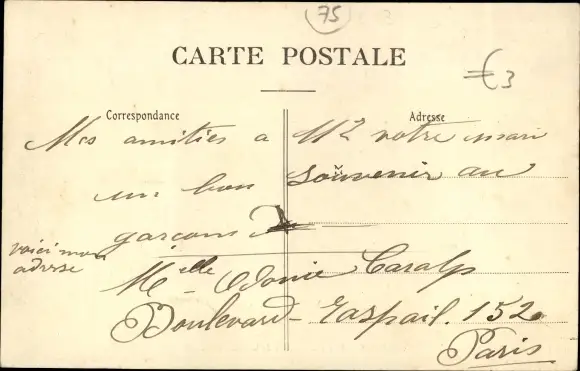 75
CARTE POSTALE
€3
Correspondance
Adresse
Mes amitiés a Mr votre mari
un bon souvenir au
garcons
voici mon
adresse
Melle Odonie Caralp
Boulevard - Raspail. 152
Paris